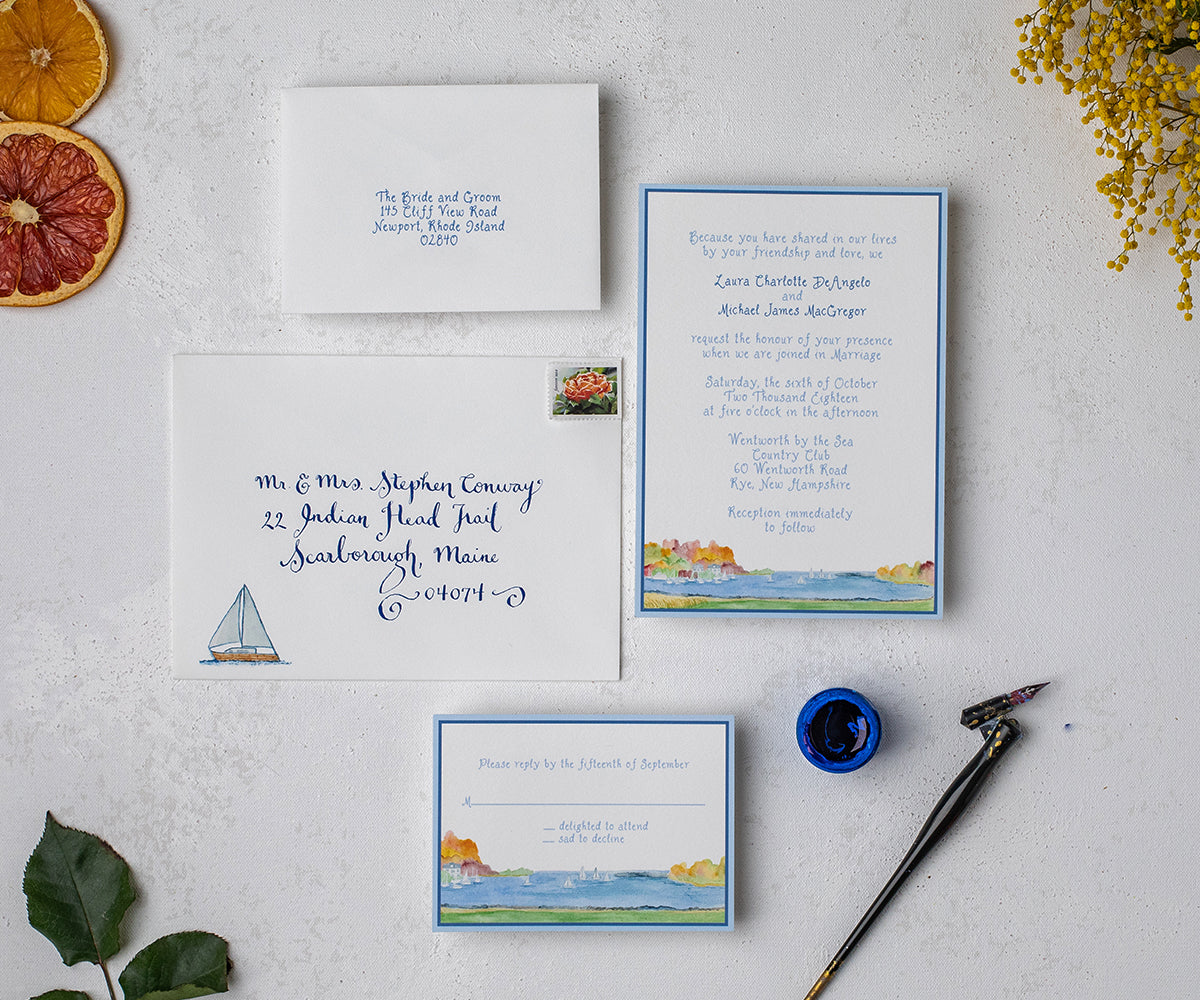 The Bride and Groom
145 Cliff View Road
Newport, Rhode Island
02840
Because you have shared in our lives
by your friendship and love, we
Laura Charlotte DeAngelo
and
Michael James MacGregor
request the honour of your presence
when we are joined in Marriage
Saturday, the sixth of October
Two Thousand Eighteen
at five o'clock in the afternoon
Wentworth by the Sea
Country Club
60 Wentworth Road
Rye, New Hampshire
Reception immediately
to follow
Mr. & Mrs. Stephen Conway
22 Indian Head Trail
Scarborough, Maine
04074
Please reply by the fifteenth of September
M
delighted to attend
sad to decline